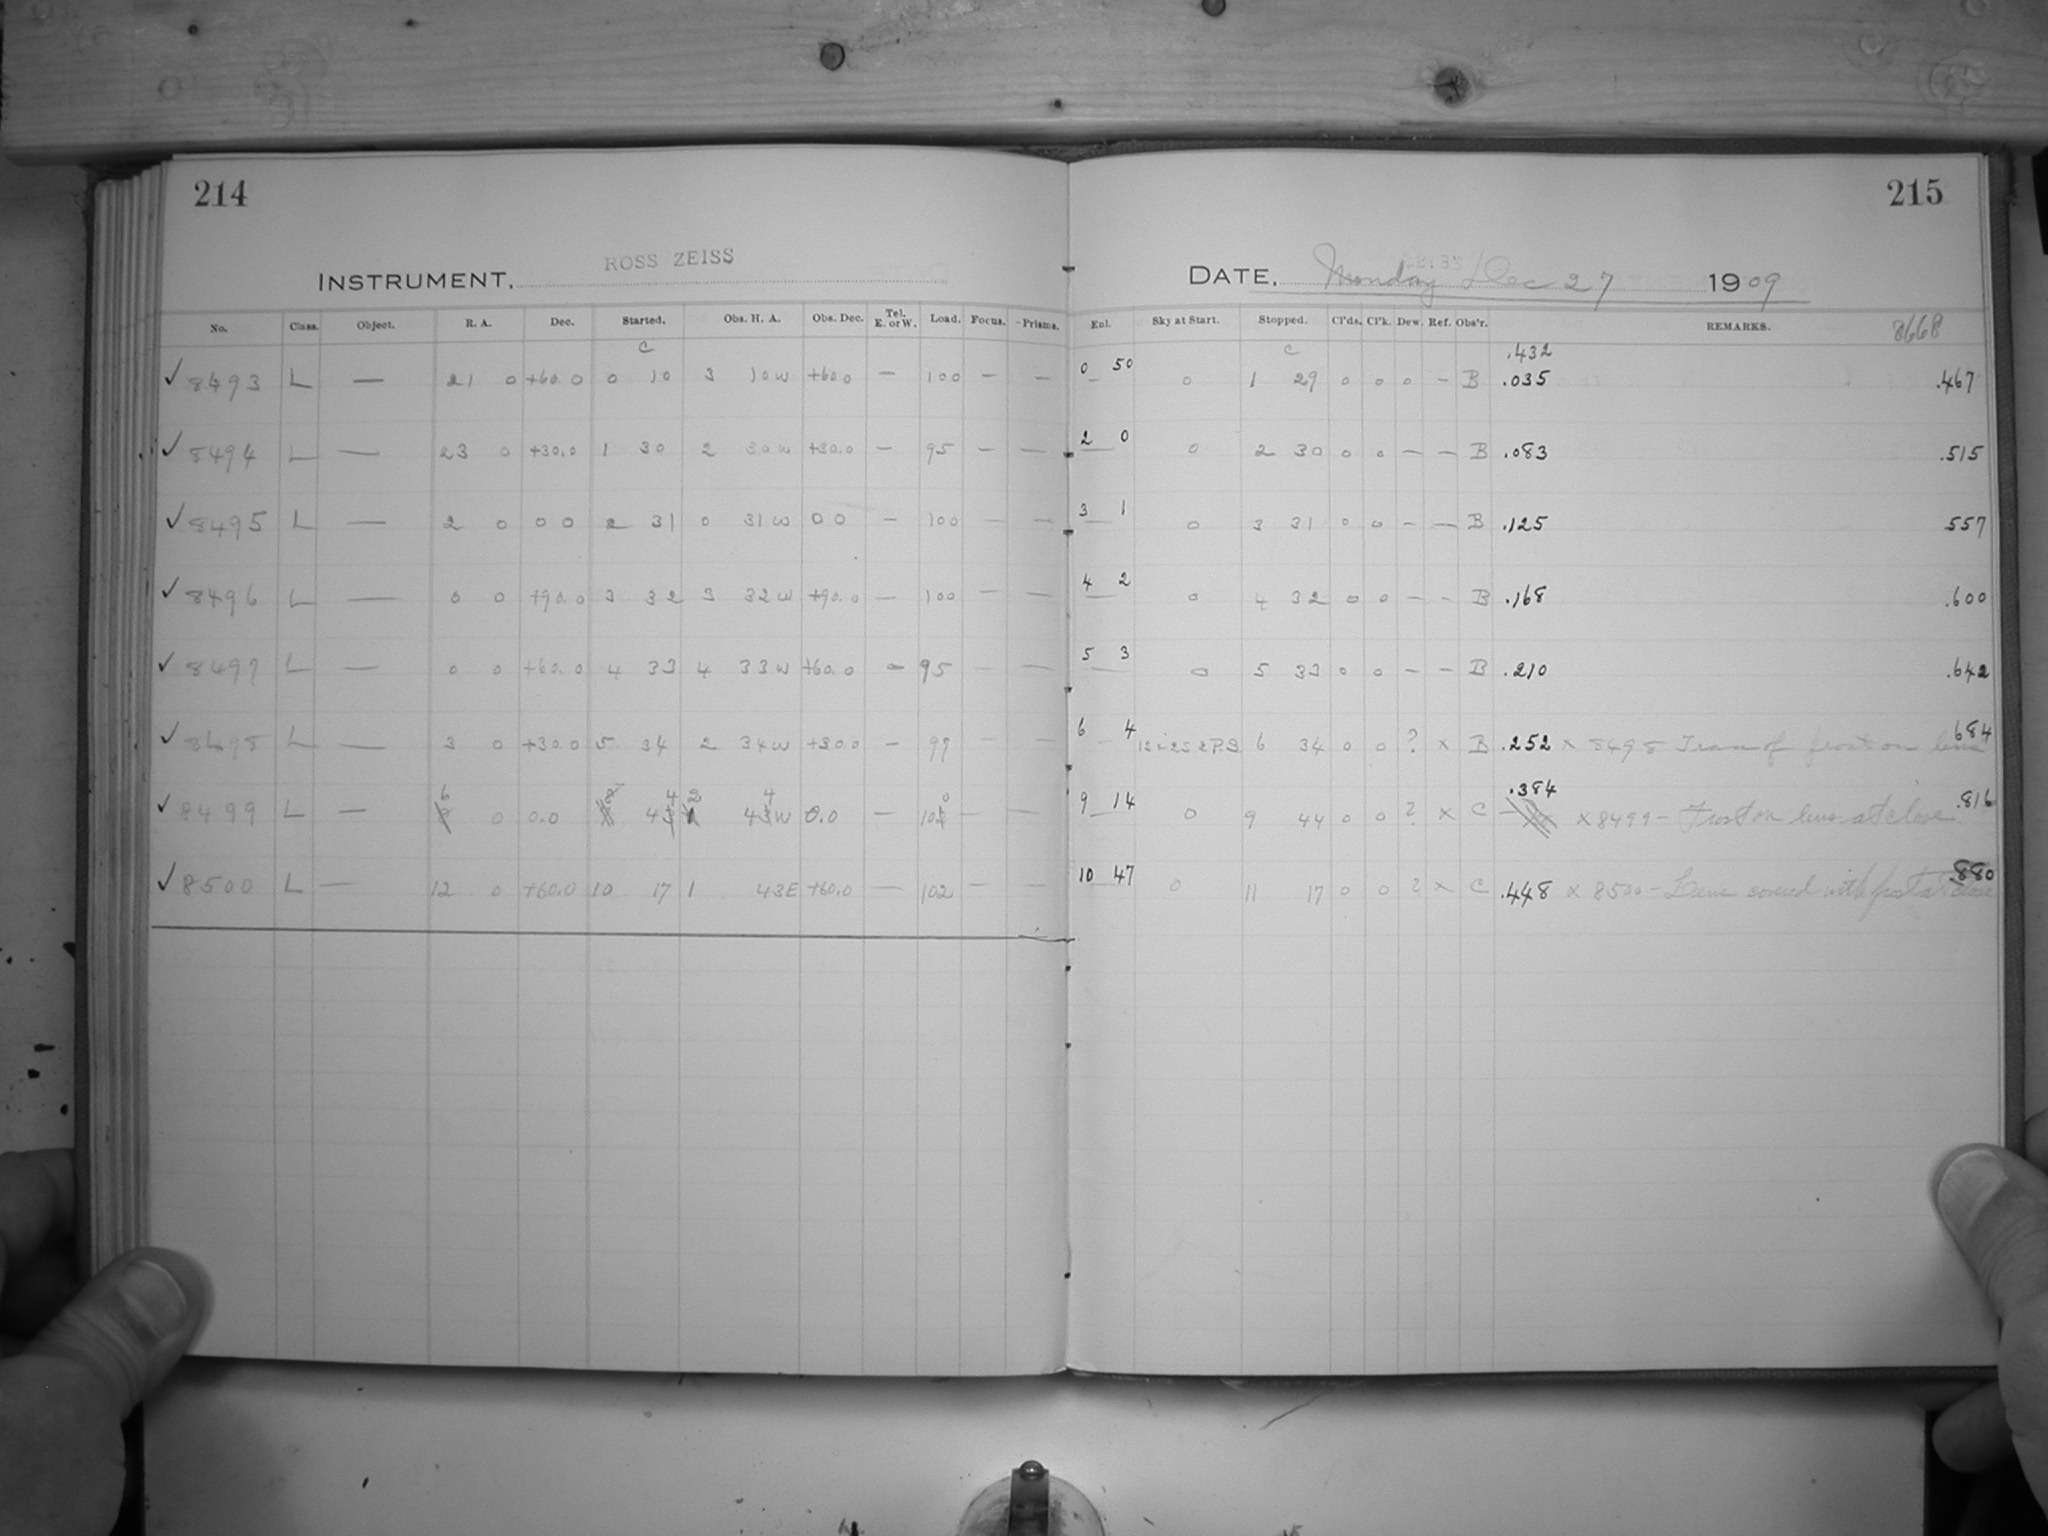 214
INSTRUMENT, ROSS ZEISS
No. Class. Object. R. A. Dec. Started. Obs. H. A. Obs. Dec. Tel. E. or W. Load. Focus. Prisms.
C
✓ 8493 L — 21 0 +60.0 0 10 3 10 W +60.0 — 100 — —
✓ 8494 L — 23 0 +30.0 1 30 2 30 W +30.0 — 95 — —
✓ 8495 L — 2 0 0 0 2 31 0 31 W 0 0 — 100 — —
✓ 8496 L — 0 0 +90.0 3 32 3 32 W +90.0 — 100 — —
✓ 8497 L — 0 0 +60.0 4 33 4 33 W +60.0 — 95 — —
✓ 8498 L — 3 0 +30.0 5 34 2 34 W +30.0 — 97 — —
6 4 2 4 0
✓ 8499 L — 0 0.0 43 43 W 0.0 — 10 — —
✓ 8500 L — 12 0 +60.0 10 17 1 43 E +60.0 — 102 — —
215
DATE, Monday Dec 27 1909
Exl. Sky at Start. Stopped. Cl'ds. Cl'k. Dew. Ref. Obs'r. REMARKS. 8668
C .432
0 50 0 1 29 0 0 0 — B .035 .467
2 0 0 2 30 0 0 — — B .083 .515
3 1 0 3 31 0 0 — — B .125 557
4 2 0 4 32 0 0 — — B .168 .600
5 3 0 5 33 0 0 — — B .210 .642
6 4 6 34 0 0 ? x B .252 x 8498 of frost on lens 684
.384
9 14 0 9 44 0 0 ? x C x 8499 - Frost on lens at close .816
10 47 0 11 17 0 0 ? x C .448 x 8500 - Lens covered with frost at close .880